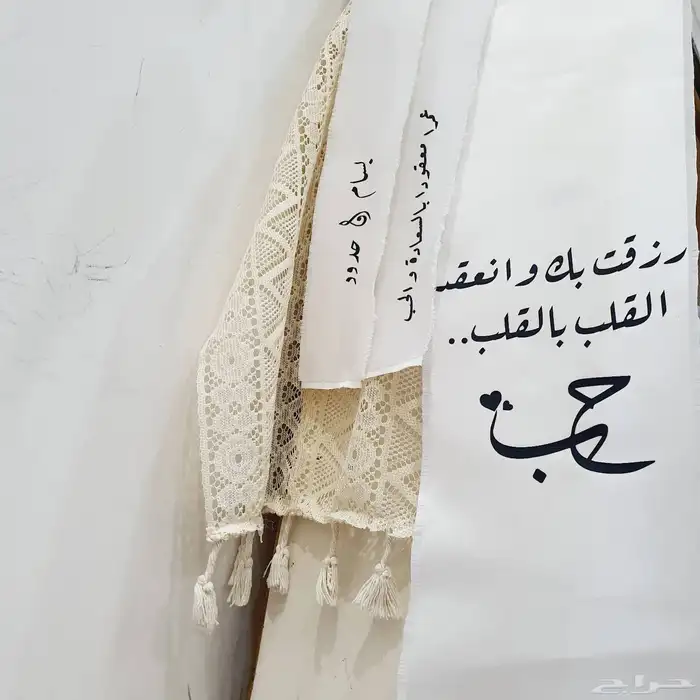 رزقت بك وانعقد
القلب بالقلب..
حب
عمرا معقودا بالسعادة والحب
بسام & حدود
حراج